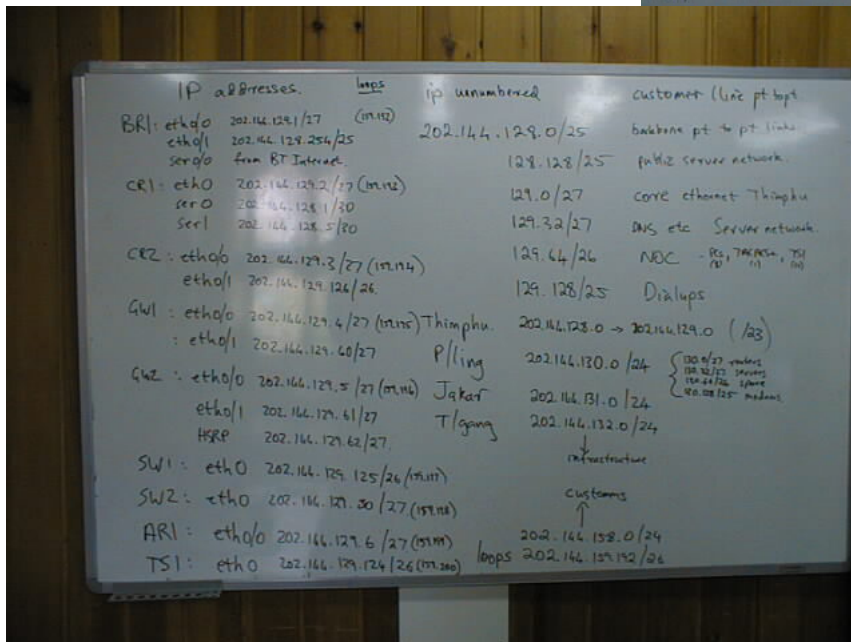 IP addresses. loops
BR1: eth0/0 202.144.129.1/27 (159.192)
eth0/1 202.144.128.254/25
ser0/0 from BT Internet.
CR1: eth0 202.144.129.2/27 (159.193)
ser0 202.144.128.1/30
ser1 202.144.128.5/30
CR2: eth0/0 202.144.129.3/27 (159.194)
eth0/1 202.144.129.126/26.
GW1: eth0/0 202.144.129.4/27 (159.195)
: eth0/1 202.144.129.60/27
GW2: eth0/0 202.144.129.5/27 (159.196)
eth0/1 202.144.129.61/27
HSRP 202.144.129.62/27.
SW1: eth0 202.144.129.125/26 (159.197)
SW2: eth0 202.144.129.30/27 (159.198)
AR1: eth0/0 202.144.129.6/27 (159.199)
TS1: eth0 202.144.129.124/26 (159.200)
ip unnumbered customer (line pt to pt
202.144.128.0/25 backbone pt to pt links
128.128/25 public server network.
129.0/27 core ethernet Thimphu
129.32/27 DNS etc Server network.
129.64/26 NOC - PCs, TS1
129.128/25 Dialups
Thimphu. 202.144.128.0 → 202.144.129.0 (/23)
P/ling 202.144.130.0/24
130.0/27 routers
130.32/27 servers
130.64/26 spare
130.128/25 modems
Jakar 202.144.131.0/24
T/gang 202.144.132.0/24
infrastructure
customers
202.144.158.0/24
loops 202.144.159.192/26